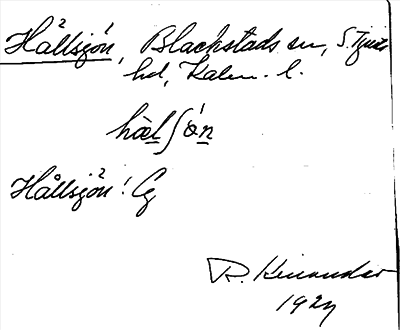 Hållsjön, Blackstads sn, S. Tjusts
hd, Kalm. l.
hœlʃön
Hållsjön! Cg
R. Kinander
1927